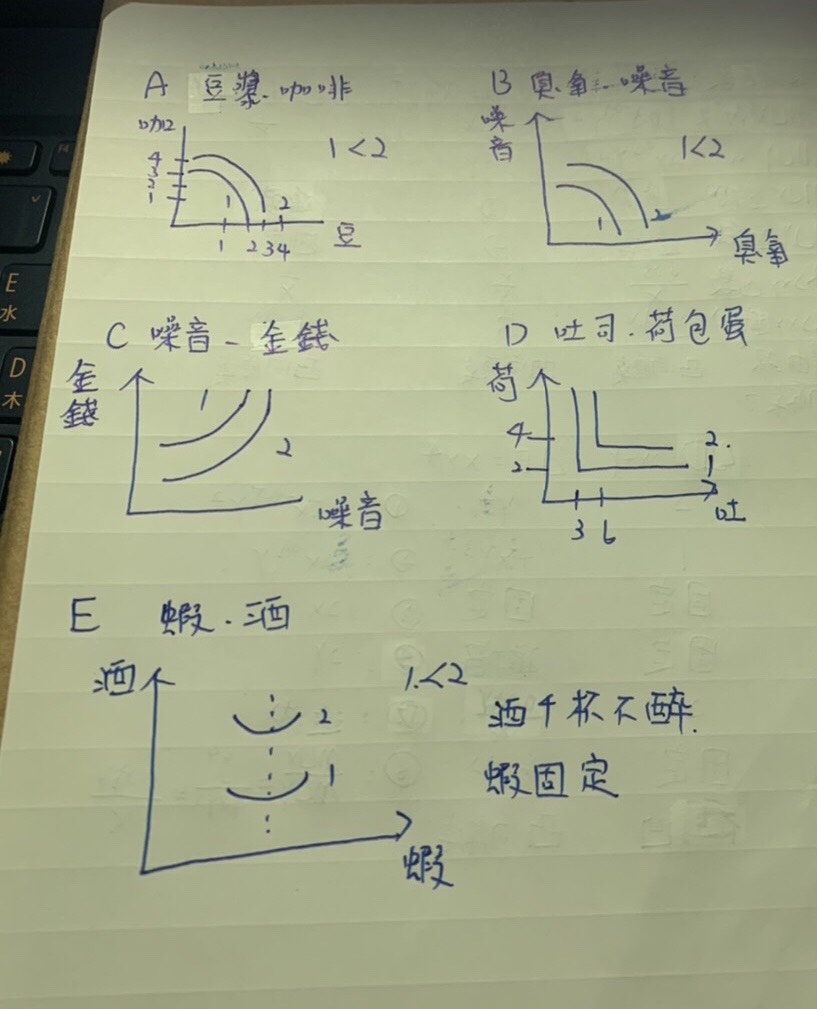 A 豆漿、咖啡
咖
4
3
2
1
1
2
1 2 3 4
豆
1<2
B 臭氧、噪音
噪音
1<2
1
2
臭氧
C 噪音、金錢
金錢
1
2
噪音
D 吐司、荷包蛋
荷
4
2
2.
1
3 6
吐
E 蝦、酒
酒
1.<2
2
1
酒千杯不醉.
蝦固定
蝦
E
水
D
木